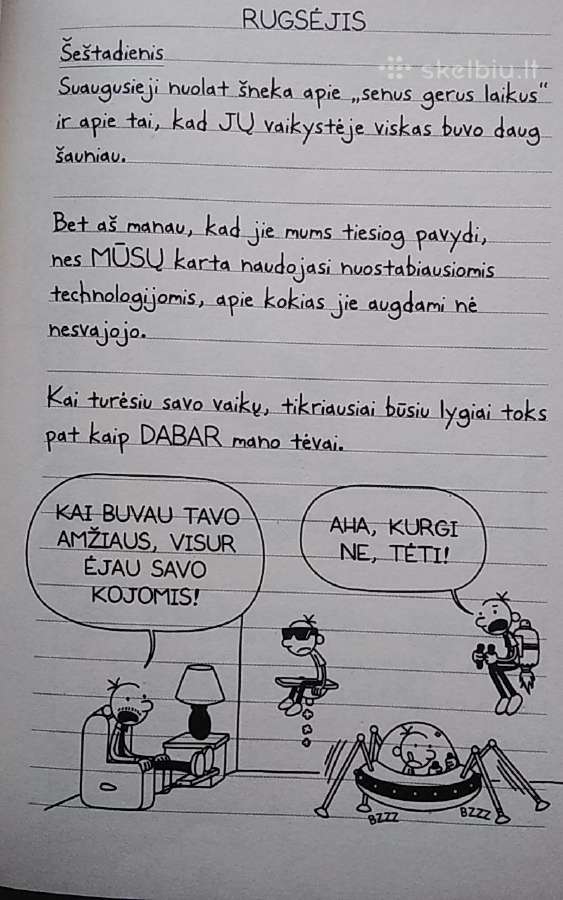 RUGSĖJIS
Šeštadienis
skelbiu.lt
Suaugusieji nuolat šneka apie „senus gerus laikus“
ir apie tai, kad JŲ vaikystėje viskas buvo daug
šauniau.
Bet aš manau, kad jie mums tiesiog pavydi,
nes MŪSŲ karta naudojasi nuostabiausiomis
technologijomis, apie kokias jie augdami nė
nesvajojo.
Kai turėsiu savo vaikų, tikriausiai būsiu lygiai toks
pat kaip DABAR mano tėvai.
KAI BUVAU TAVO
AMŽIAUS, VISUR
ĖJAU SAVO
KOJOMIS!
AHA, KURGI
NE, TĖTI!
BZZZ
BZZZ